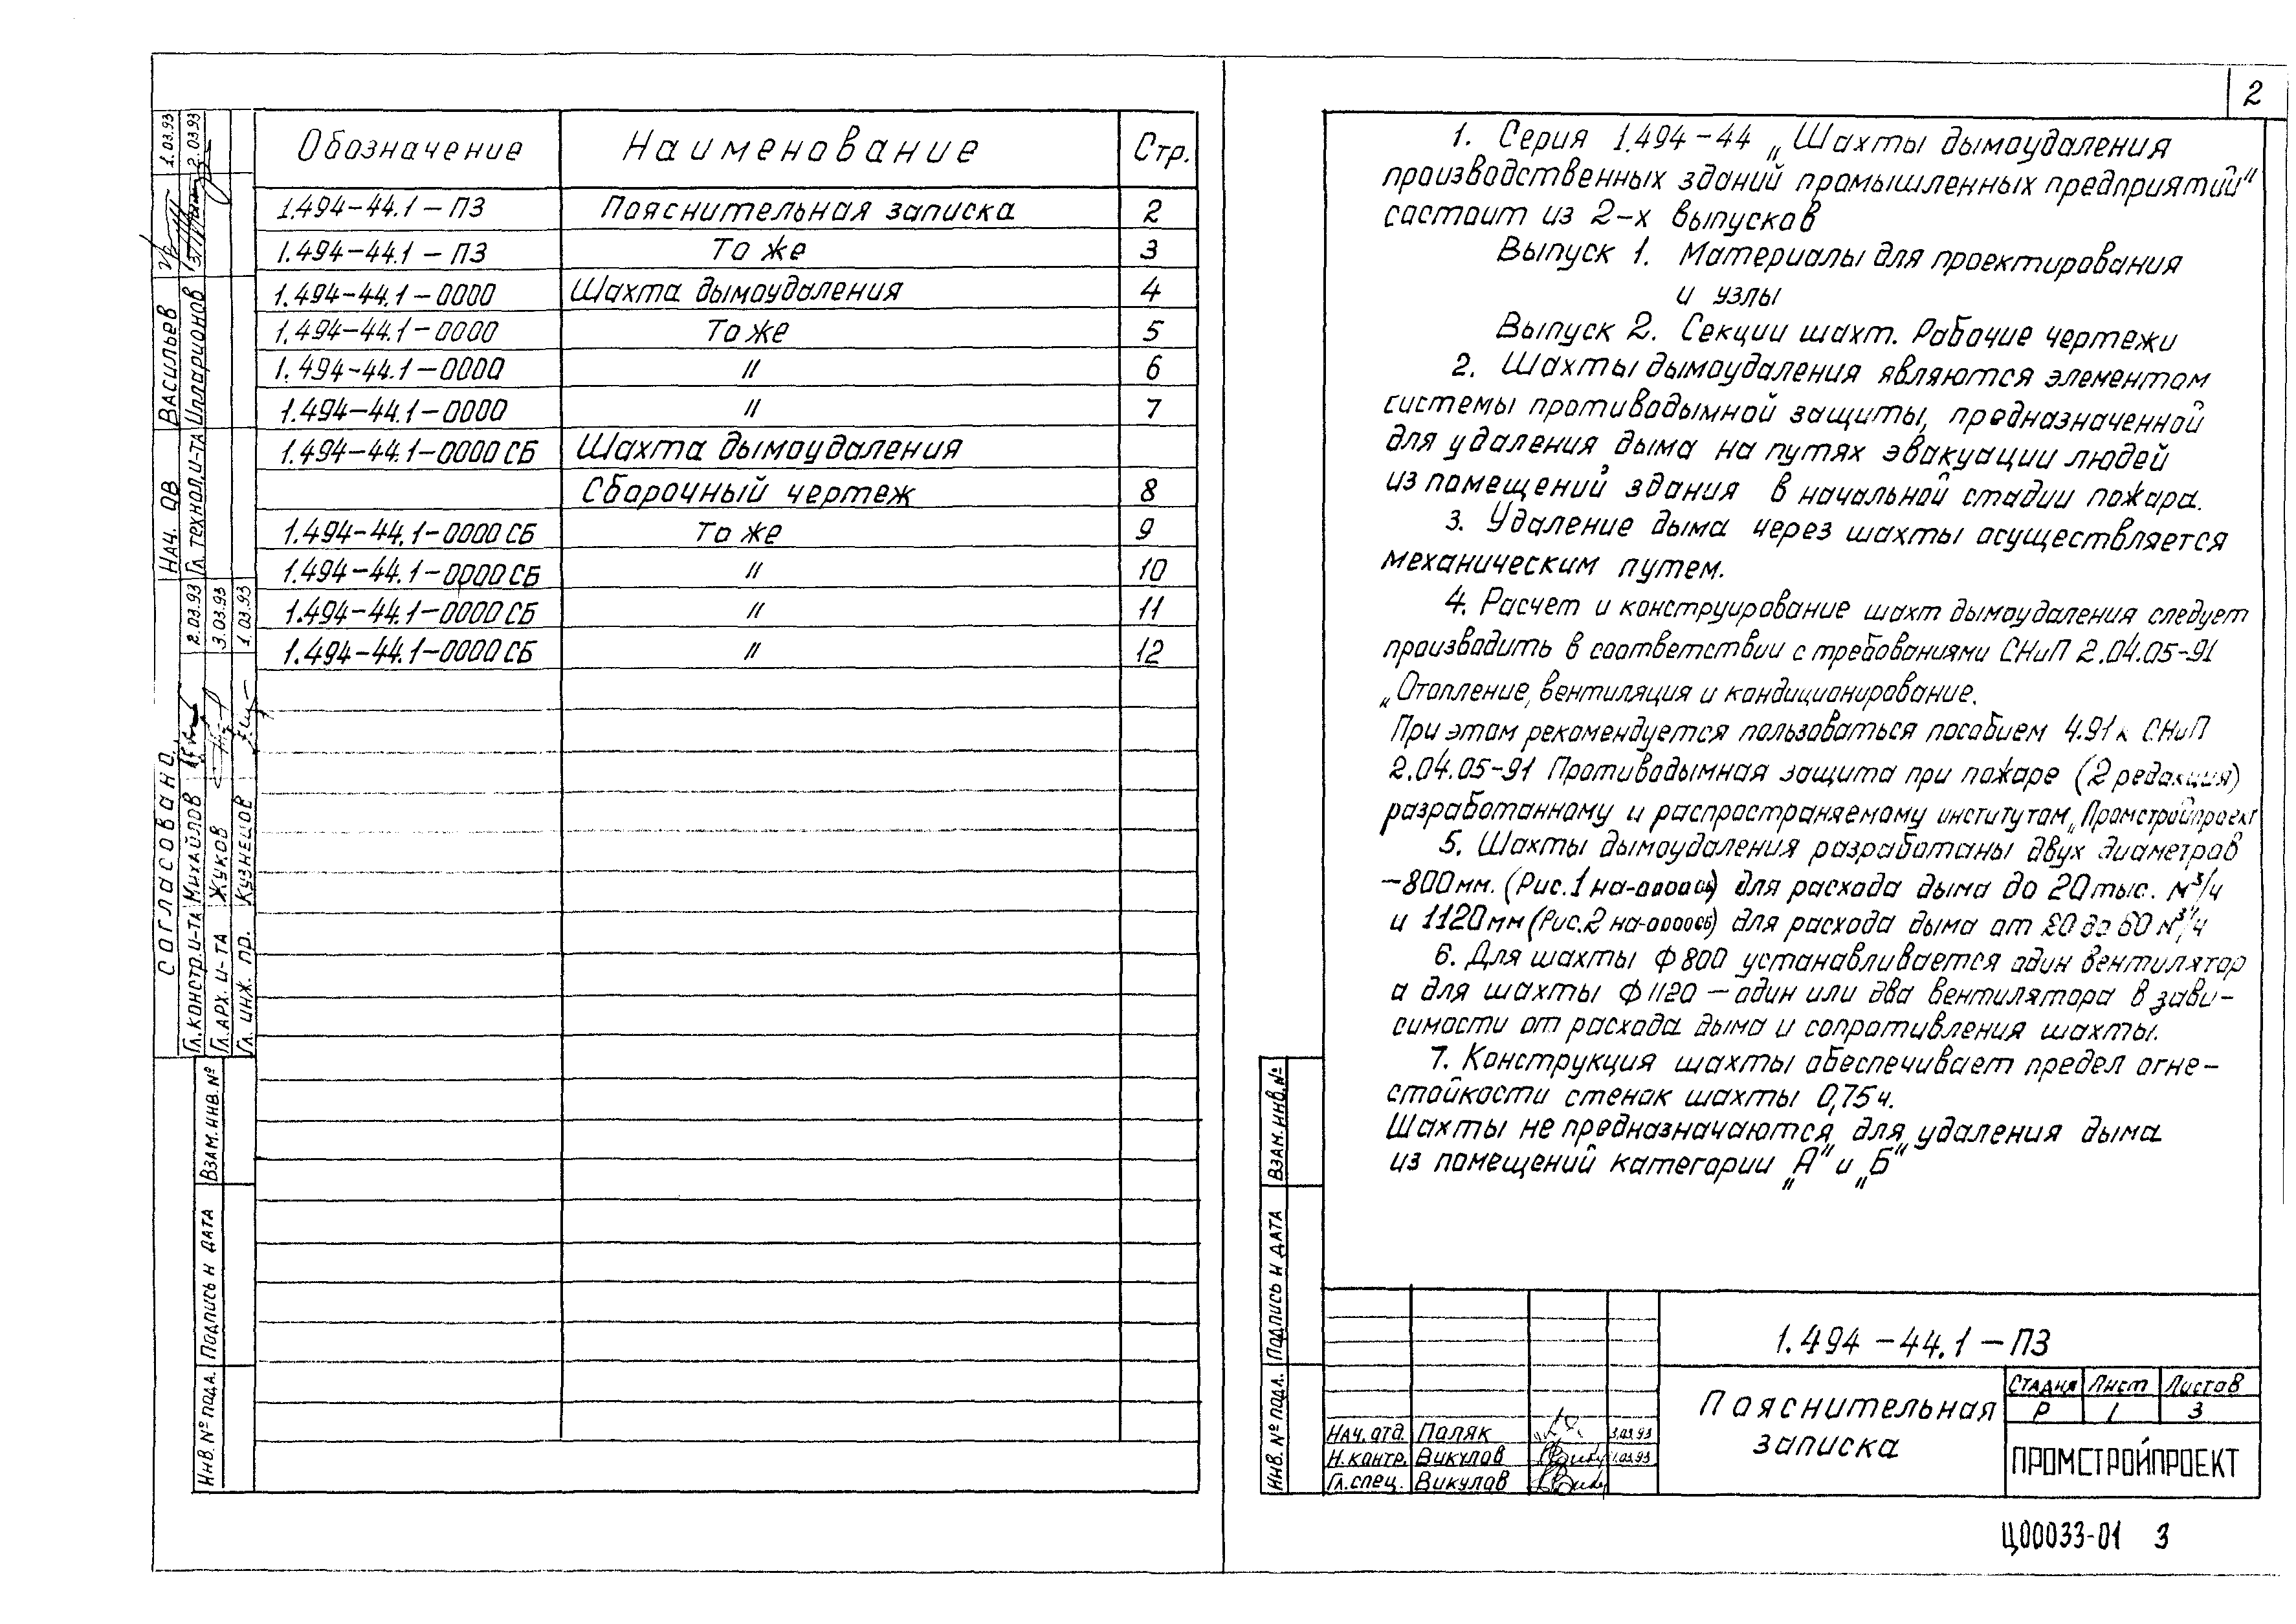 Обозначение Наименование Стр.
1.494-44.1-ПЗ Пояснительная записка 2
1.494-44.1-ПЗ То же 3
1.494-44.1-0000 Шахта дымоудаления 4
1.494-44.1-0000 То же 5
1.494-44.1-0000 " 6
1.494-44.1-0000 " 7
1.494-44.1-0000 СБ Шахта дымоудаления
Сборочный чертеж 8
1.494-44.1-0000 СБ То же 9
1.494-44.1-0000 СБ " 10
1.494-44.1-0000 СБ " 11
1.494-44.1-0000 СБ " 12
Согласовано
Нач. ОВ Васильев 1.03.93
Гл. технол. и-та 2.03.93
Гл. констр. и-та Михайлов 2.03.93
Гл. арх. и-та Жуков 3.03.93
Гл. инж. пр. Кузнецов 1.03.93
Взам. инв. №
Подпись и дата
Инв. № подл.
2
1. Серия 1.494-44 „Шахты дымоудаления
производственных зданий промышленных предприятий"
состоит из 2-х выпусков
Выпуск 1. Материалы для проектирования
и узлы
Выпуск 2. Секции шахт. Рабочие чертежи
2. Шахты дымоудаления являются элементом
системы противодымной защиты, предназначенной
для удаления дыма на путях эвакуации людей
из помещений здания в начальной стадии пожара.
3. Удаление дыма через шахты осуществляется
механическим путем.
4. Расчет и конструирование шахт дымоудаления следует
производить в соответствии с требованиями СНиП 2.04.05-91
„Отопление, вентиляция и кондиционирование.
При этом рекомендуется пользоваться пособием 4.91 к СНиП
2.04.05-91 Противодымная защита при пожаре (2 редакция)
разработанному и распространяемому институтом „Промстройпроект
5. Шахты дымоудаления разработаны двух диаметров
-800мм. (Рис.1 на-0000СБ) для расхода дыма до 20 тыс. м³/ч
и 1120мм (Рис.2 на-0000СБ) для расхода дыма от 20 до 60 м³/ч
6. Для шахты Ф800 устанавливается один вентилятор
а для шахты Ф1120 - один или два вентилятора в зави-
симости от расхода дыма и сопротивления шахты.
7. Конструкция шахты обеспечивает предел огне-
стойкости стенок шахты 0,75 ч.
Шахты не предназначаются для удаления дыма
из помещений категории „А" и „Б"
Взам. инв. №
Подпись и дата
Инв. № подл.
1.494-44.1-ПЗ
Пояснительная
записка
Стадия Лист Листов
Р 1 3
ПРОМСТРОЙПРОЕКТ
Нач. отд. Поляк 3.03.93
Н. контр. Викулов 1.03.93
Гл. спец. Викулов
Ц00033-01 3